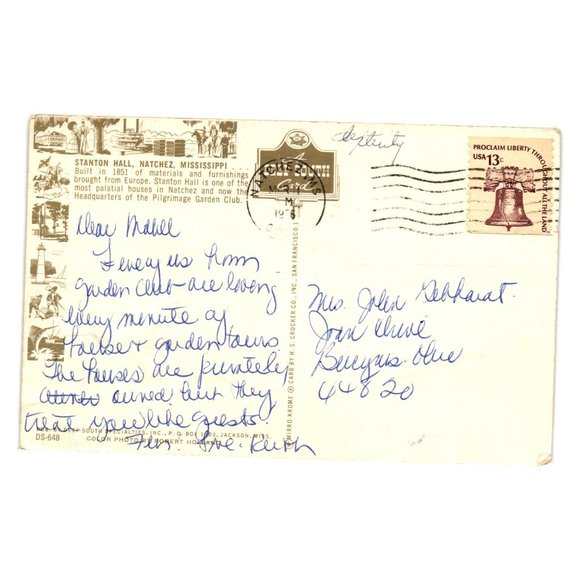 STANTON HALL, NATCHEZ, MISSISSIPPI
Built in 1851 of materials and furnishings
brought from Europe. Stanton Hall is one of the
most palatial houses in Natchez and now the
Headquarters of the Pilgrimage Garden Club.
Dear Mabel
Twelve of us from
garden club are loving
every minute of
house & garden tours
The houses are privately
owned but they
treat you like guests.
Love
DS-648
SOUTH SPECIALTIES, INC., P. O. BOX JACKSON, MISS.
COLOR PHOTO BY ROBERT
MIRRO KROME ® CARD BY H. S. CROCKER CO., INC., SAN FRANCISCO
DEEP SOUTH
Card
NATCHEZ MS
M
1976
PROCLAIM LIBERTY THROUGHOUT ALL THE LAND
USA 13c
Mrs. John Gebhardt
Joan Drive
Bucyrus Ohio
44820